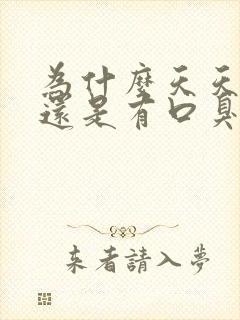 為什麼天天
還是有口臭
来者請入夢